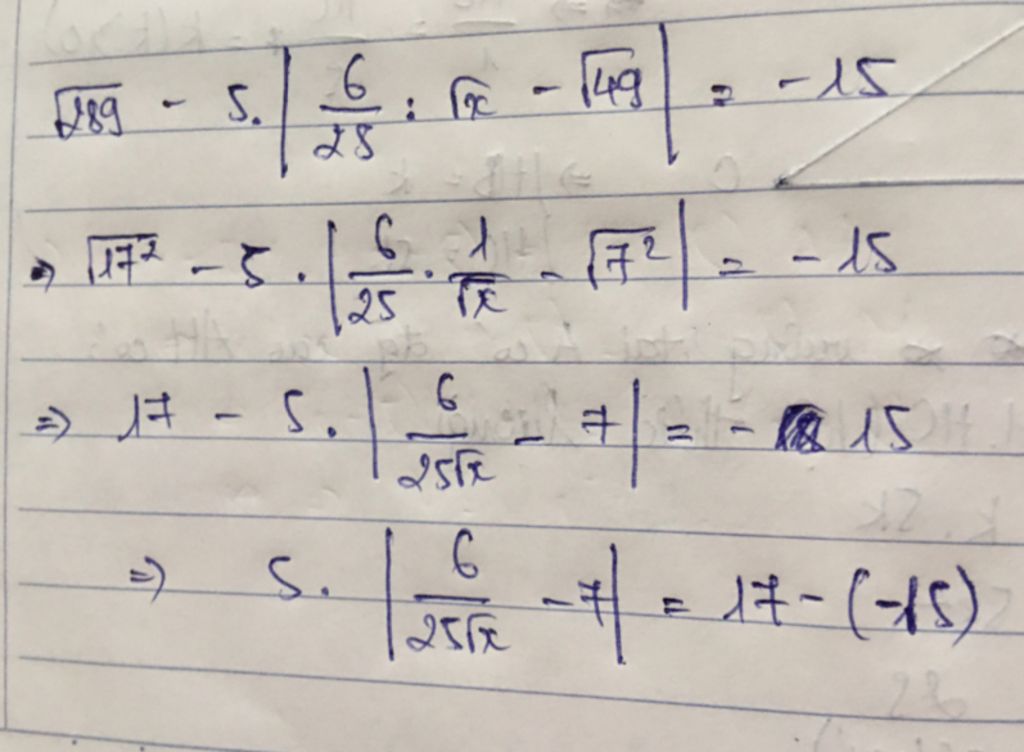 √289 - 5.|6/25 : √x - √49| = -15
⇒ √17² - 5.|6/25 . 1/√x - √7²| = -15
⇒ 17 - 5.|6/25√x - 7| = - 15
⇒ 5.|6/25√x - 7| = 17 - (-15)